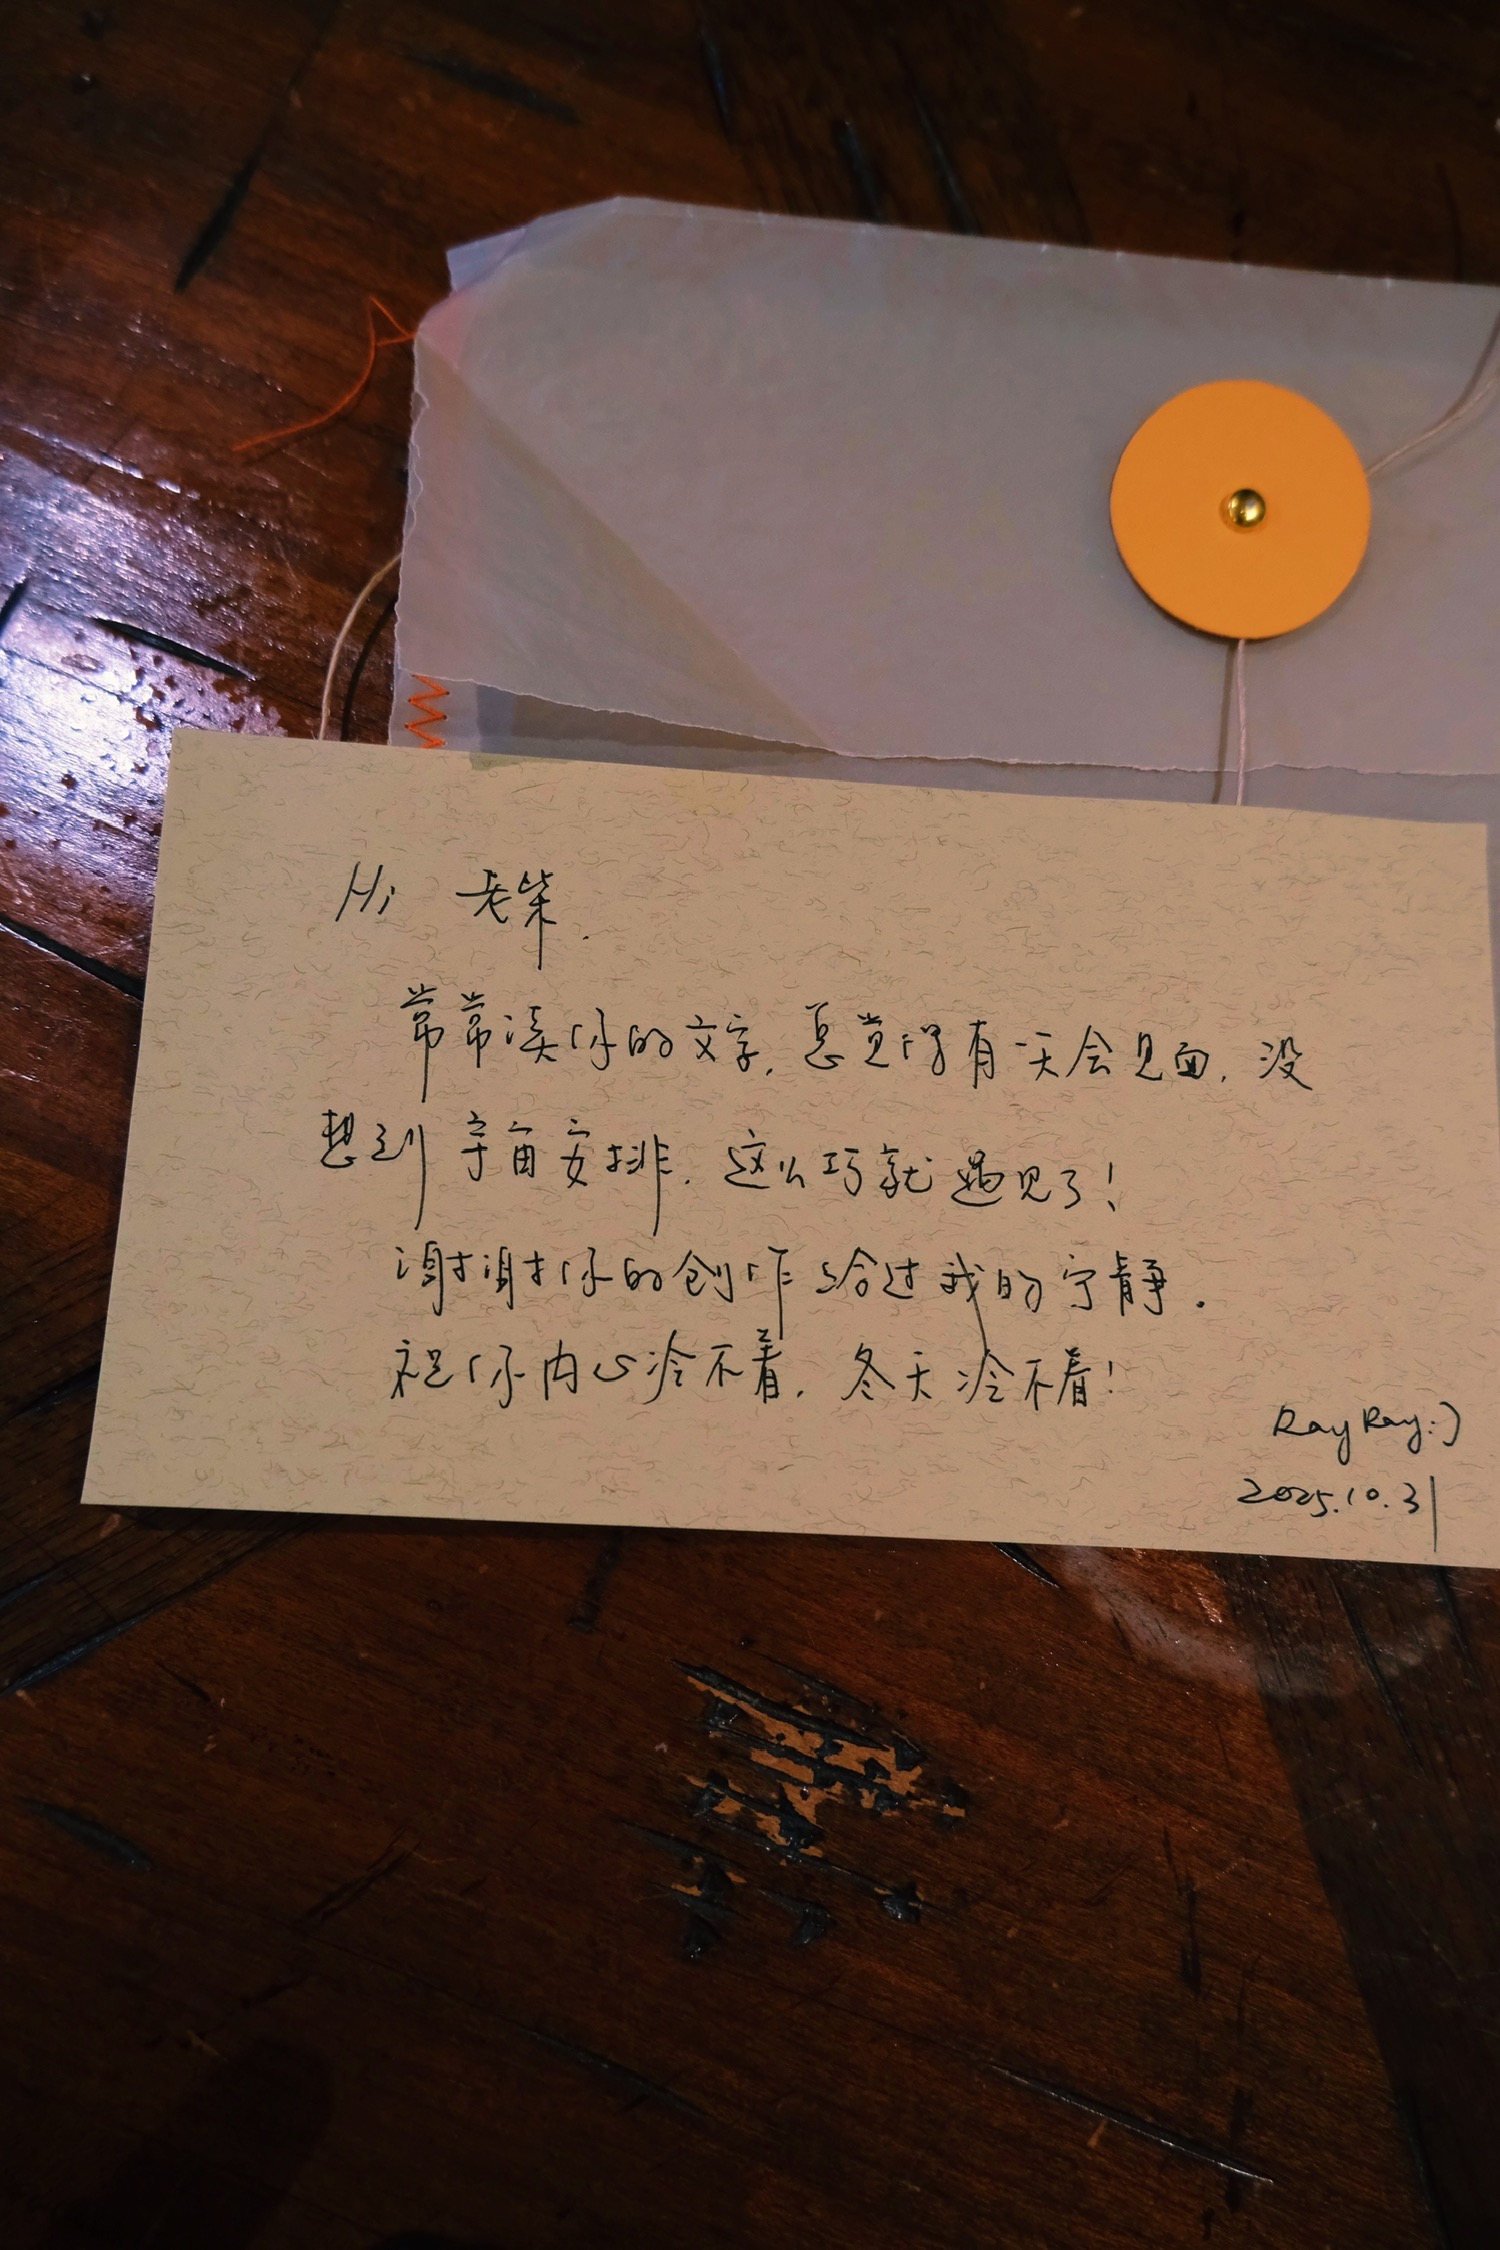 Hi 老柴.
常常读你的文字，总觉得有一天会见面，没
想到宇宙安排，这么巧就遇见了！
谢谢你的创作给过我的宁静.
祝你内心冷不着，冬天冷不着！
RayRay:)
2025.10.31